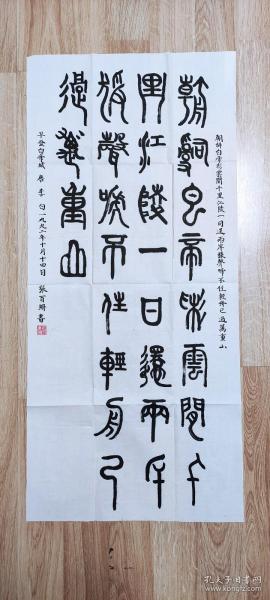 朝辞白帝彩雲間千里江陵一日還兩岸猿聲啼不住輕舟已過萬重山
朝辭白帝彩雲間千
里江陵一日還兩岸
猿聲啼不住輕舟已
過萬重山
早發白帝城 唐 李白 一九九 年十月十四日 張百 書
孔夫子旧书网